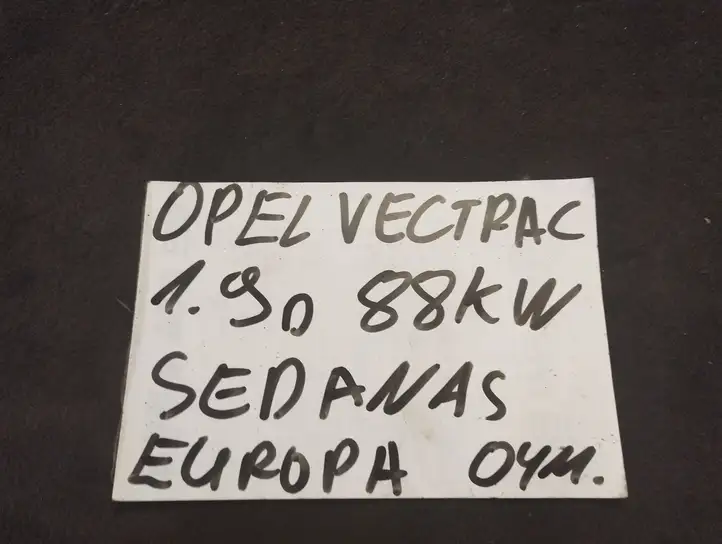 OPEL VECTRA C
1.9D 88KW
SEDANAS
EUROPA 04M.